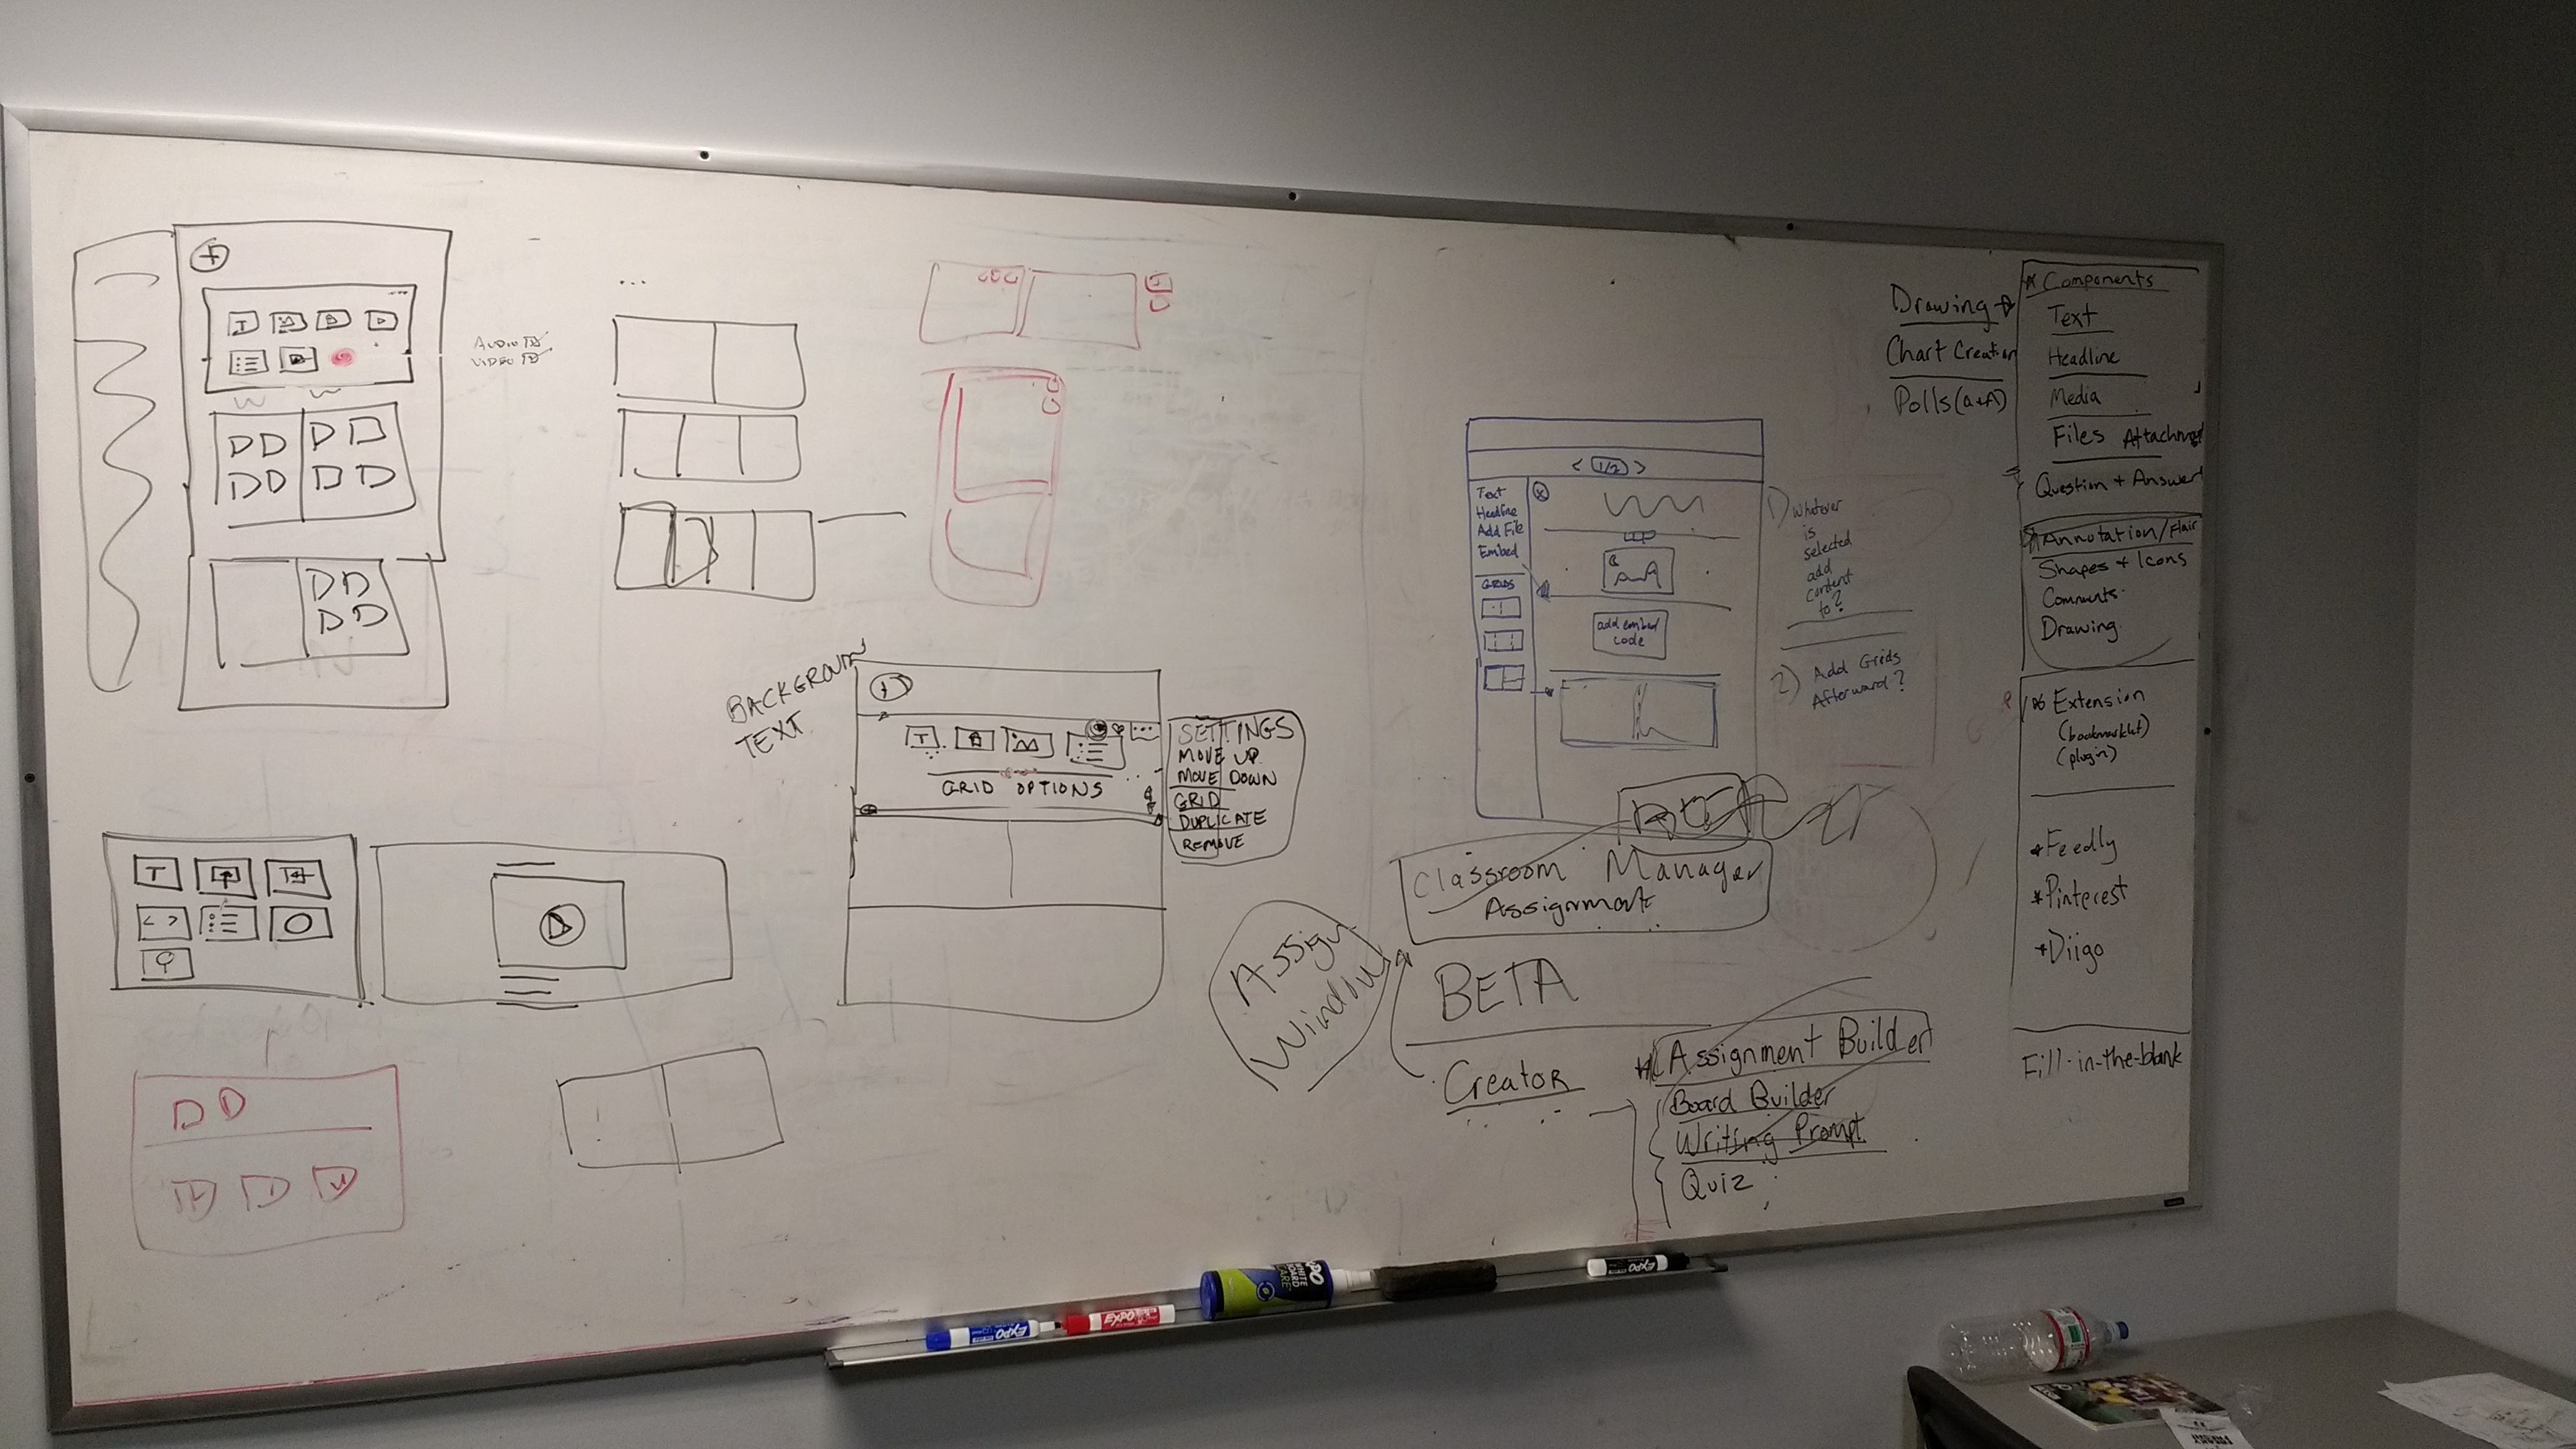 AUDIO
VIDEO
...
BACKGROUND
TEXT
T
GRID OPTIONS
SETTINGS
MOVE UP
MOVE DOWN
GRID
DUPLICATE
REMOVE
T
< >
< 1/2 >
Text
Headline
Add File
Embed
GRIDS
add embed
code
1) Whatever
is
selected
add
content
to?
2) Add Grids
Afterward?
Classroom Manager
Assignment
Assign
Window
BETA
Creator
Assignment Builder
Board Builder
Writing Prompt
Quiz
Drawing
Chart Creation
Polls (Q+A)
Components
Text
Headline
Media
Files Attachment
Question + Answer
Annotation/Flair
Shapes + Icons
Comments
Drawing
Extension
(bookmarklet)
(plugin)
Feedly
Pinterest
Diigo
Fill-in-the-blank
EXPO
EXPO
EXPO
WHITE
BOARD
CARE
EXPO